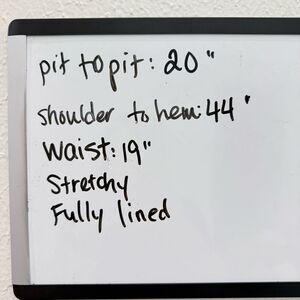 pit to pit: 20"
shoulder to hem: 44"
Waist: 19"
Stretchy
Fully lined